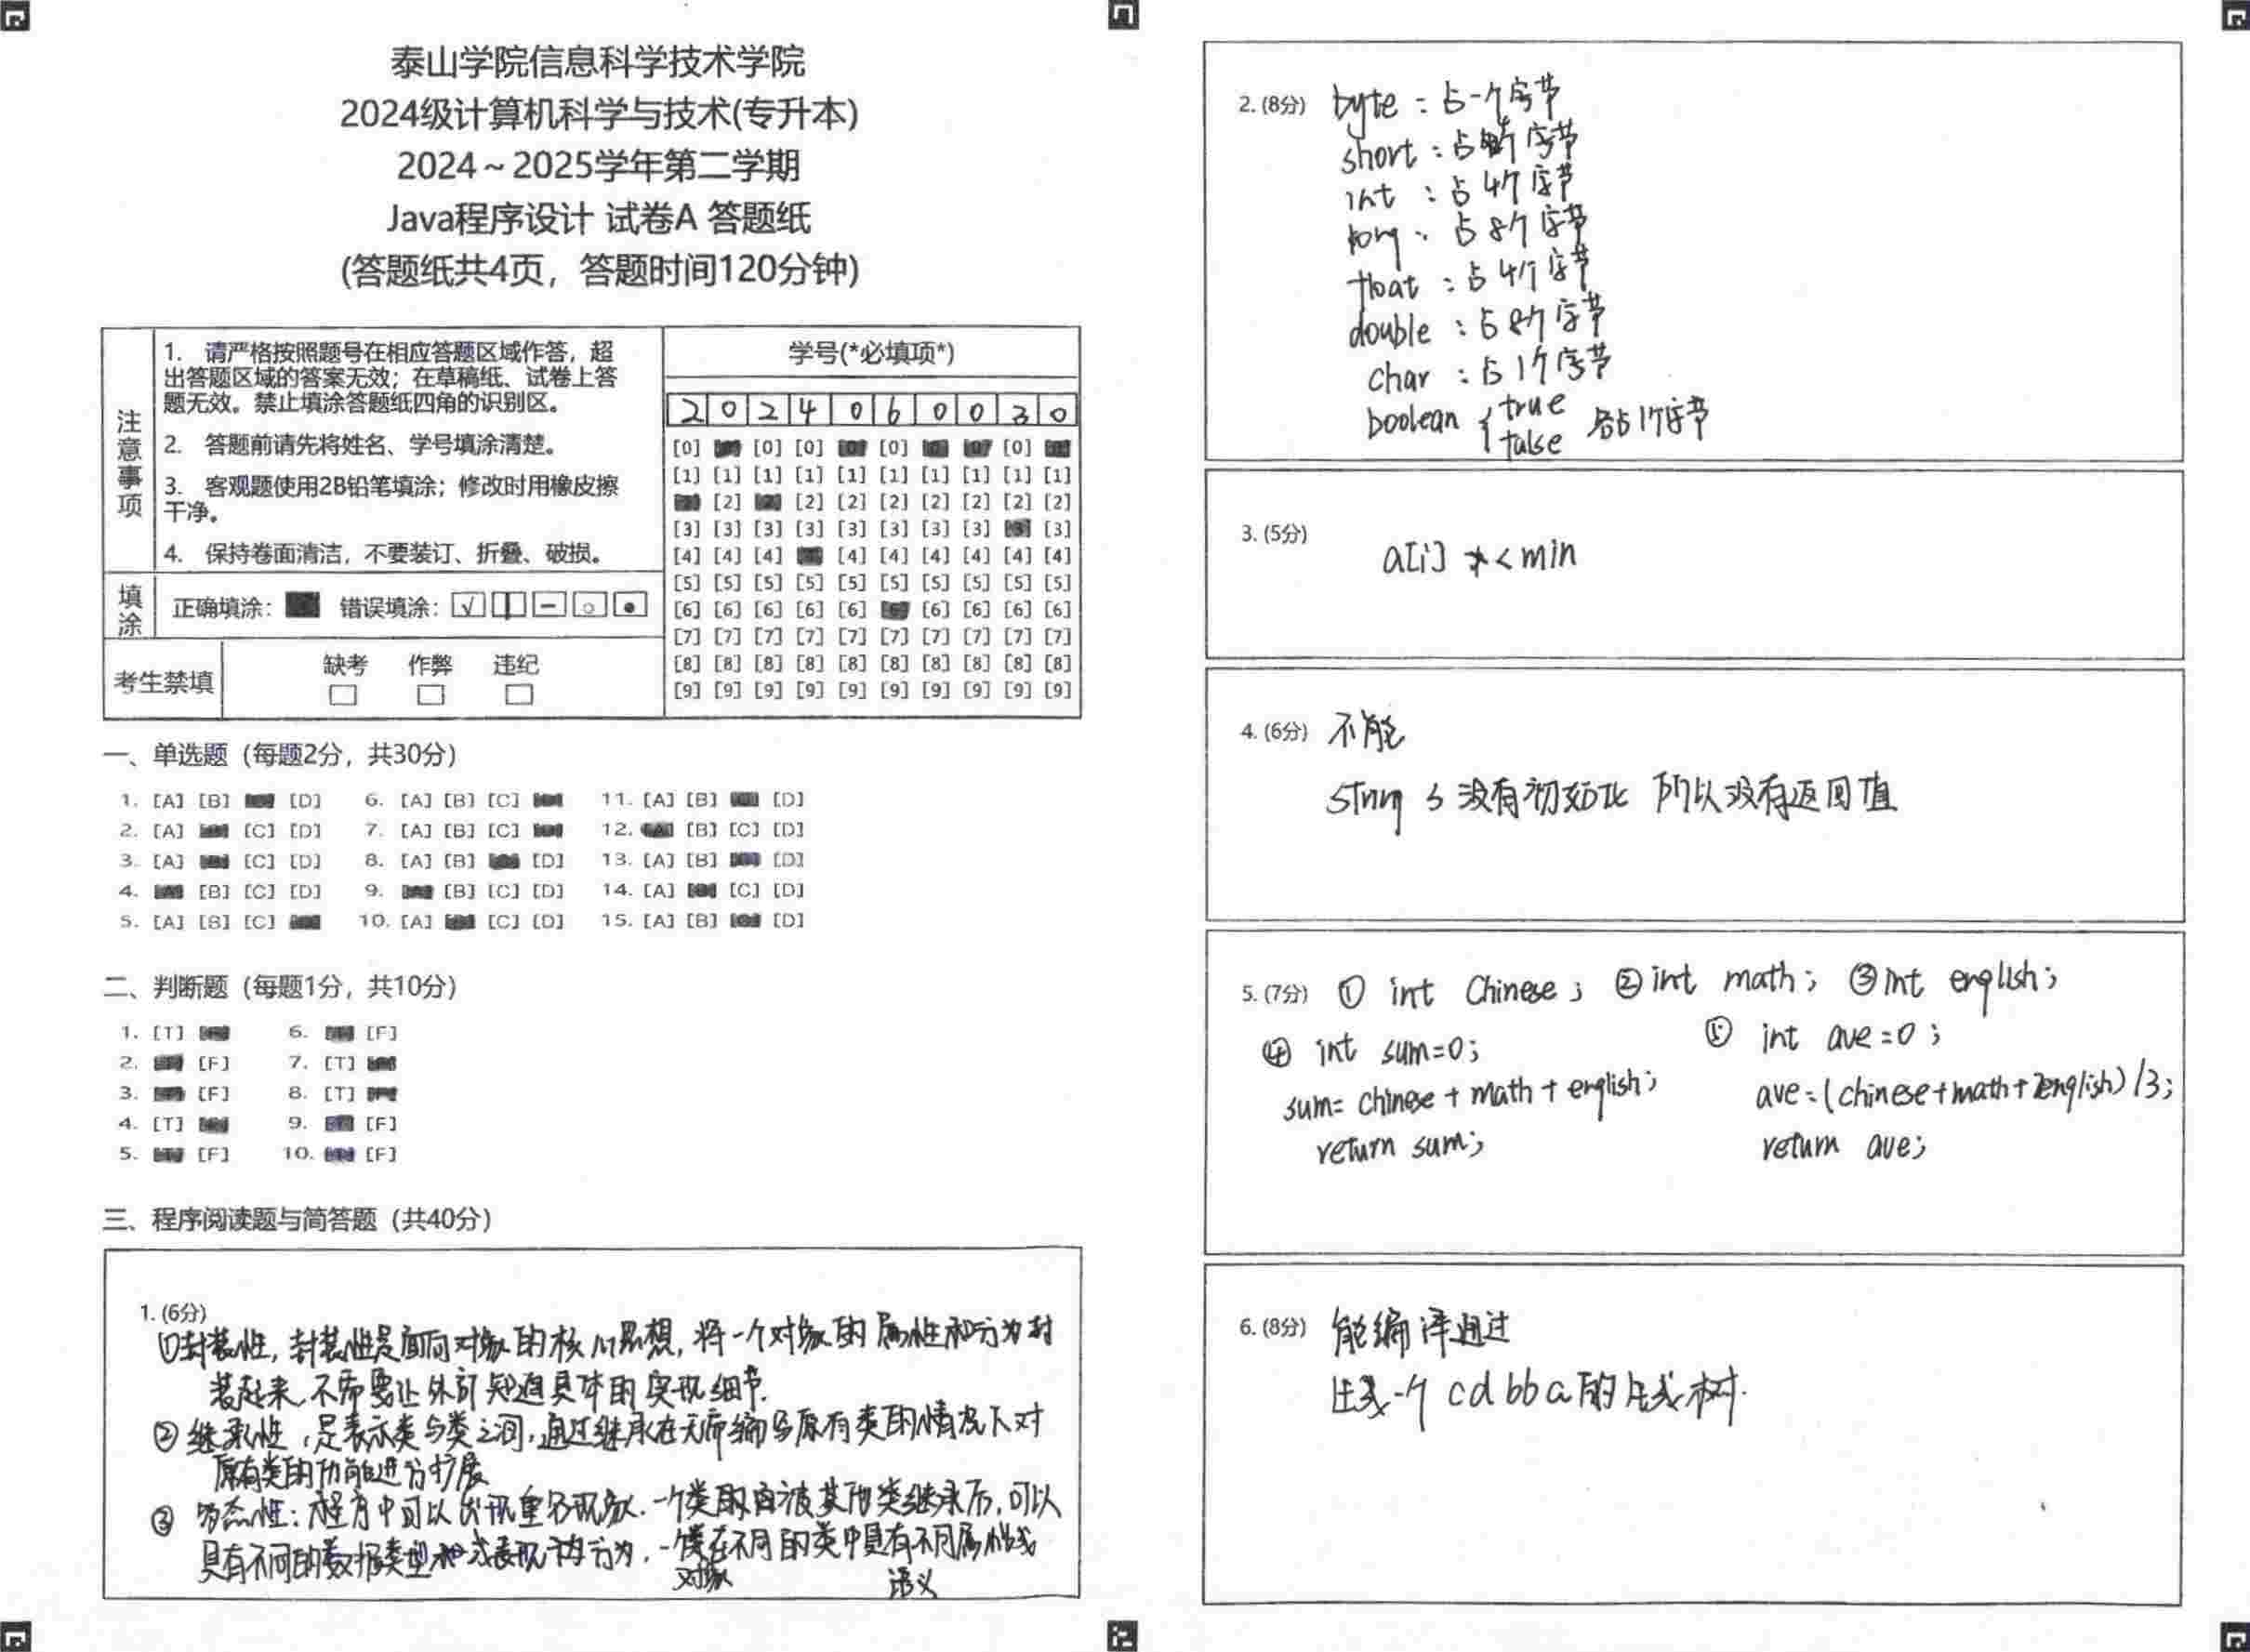 泰山学院信息科学技术学院
2024级计算机科学与技术(专升本)
2024~2025学年第二学期
Java程序设计 试卷A 答题纸
(答题纸共4页，答题时间120分钟)
注意事项
1. 请严格按照题号在相应答题区域作答，超
出答题区域的答案无效；在草稿纸、试卷上答
题无效。禁止填涂答题纸四角的识别区。
2. 答题前请先将姓名、学号填涂清楚。
3. 客观题使用2B铅笔填涂；修改时用橡皮擦
干净。
4. 保持卷面清洁，不要装订、折叠、破损。
填涂
正确填涂： 错误填涂：
考生禁填
缺考 作弊 违纪
学号(*必填项*)
2 0 2 4 0 6 0 0 3 0
[0] [0] [0] [0] [0]
[1] [1] [1] [1] [1] [1] [1] [1] [1] [1]
[2] [2] [2] [2] [2] [2] [2] [2]
[3] [3] [3] [3] [3] [3] [3] [3] [3]
[4] [4] [4] [4] [4] [4] [4] [4] [4]
[5] [5] [5] [5] [5] [5] [5] [5] [5] [5]
[6] [6] [6] [6] [6] [6] [6] [6] [6]
[7] [7] [7] [7] [7] [7] [7] [7] [7] [7]
[8] [8] [8] [8] [8] [8] [8] [8] [8] [8]
[9] [9] [9] [9] [9] [9] [9] [9] [9] [9]
一、单选题（每题2分，共30分）
1. [A] [B] [D] 6. [A] [B] [C] 11. [A] [B] [D]
2. [A] [C] [D] 7. [A] [B] [C] 12. [B] [C] [D]
3. [A] [C] [D] 8. [A] [B] [D] 13. [A] [B] [D]
4. [B] [C] [D] 9. [B] [C] [D] 14. [A] [C] [D]
5. [A] [B] [C] 10. [A] [C] [D] 15. [A] [B] [D]
二、判断题（每题1分，共10分）
1. [T] 6. [F]
2. [F] 7. [T]
3. [F] 8. [T]
4. [T] 9. [F]
5. [F] 10. [F]
三、程序阅读题与简答题（共40分）
1. (6分)
①封装性，封装性是面向对象的核心思想，将一个对象的属性和行为封
装起来，不需要让外部知道具体的实现细节.
②继承性，是表示类与类之间，通过继承在无需编写原有类的情况下对
原有类的功能进行扩展
③多态性：程序中可以出现重名现象.一个类被其他类继承后，可以
具有不同的数据类型或表现行为，一个
对象
在不同的类中具有不同属性或
语义
2. (8分) byte：占一个字节
short：占字节
int：占4个字节
long：占8个字节
float：占4个字节
double：占8个字节
char：占1个字节
boolean { true
false 各占1个字节
3. (5分)
a[i] < min
4. (6分) 不能
String s 没有初始化 所以没有返回值
5. (7分) ① int Chinese; ② int math; ③ int english;
④ int sum=0; ⑤ int ave=0;
sum= chinese + math + english; ave=(chinese+math+english)/3;
return sum; return ave;
6. (8分) 能编译通过
生成一个cdbba的生成树.